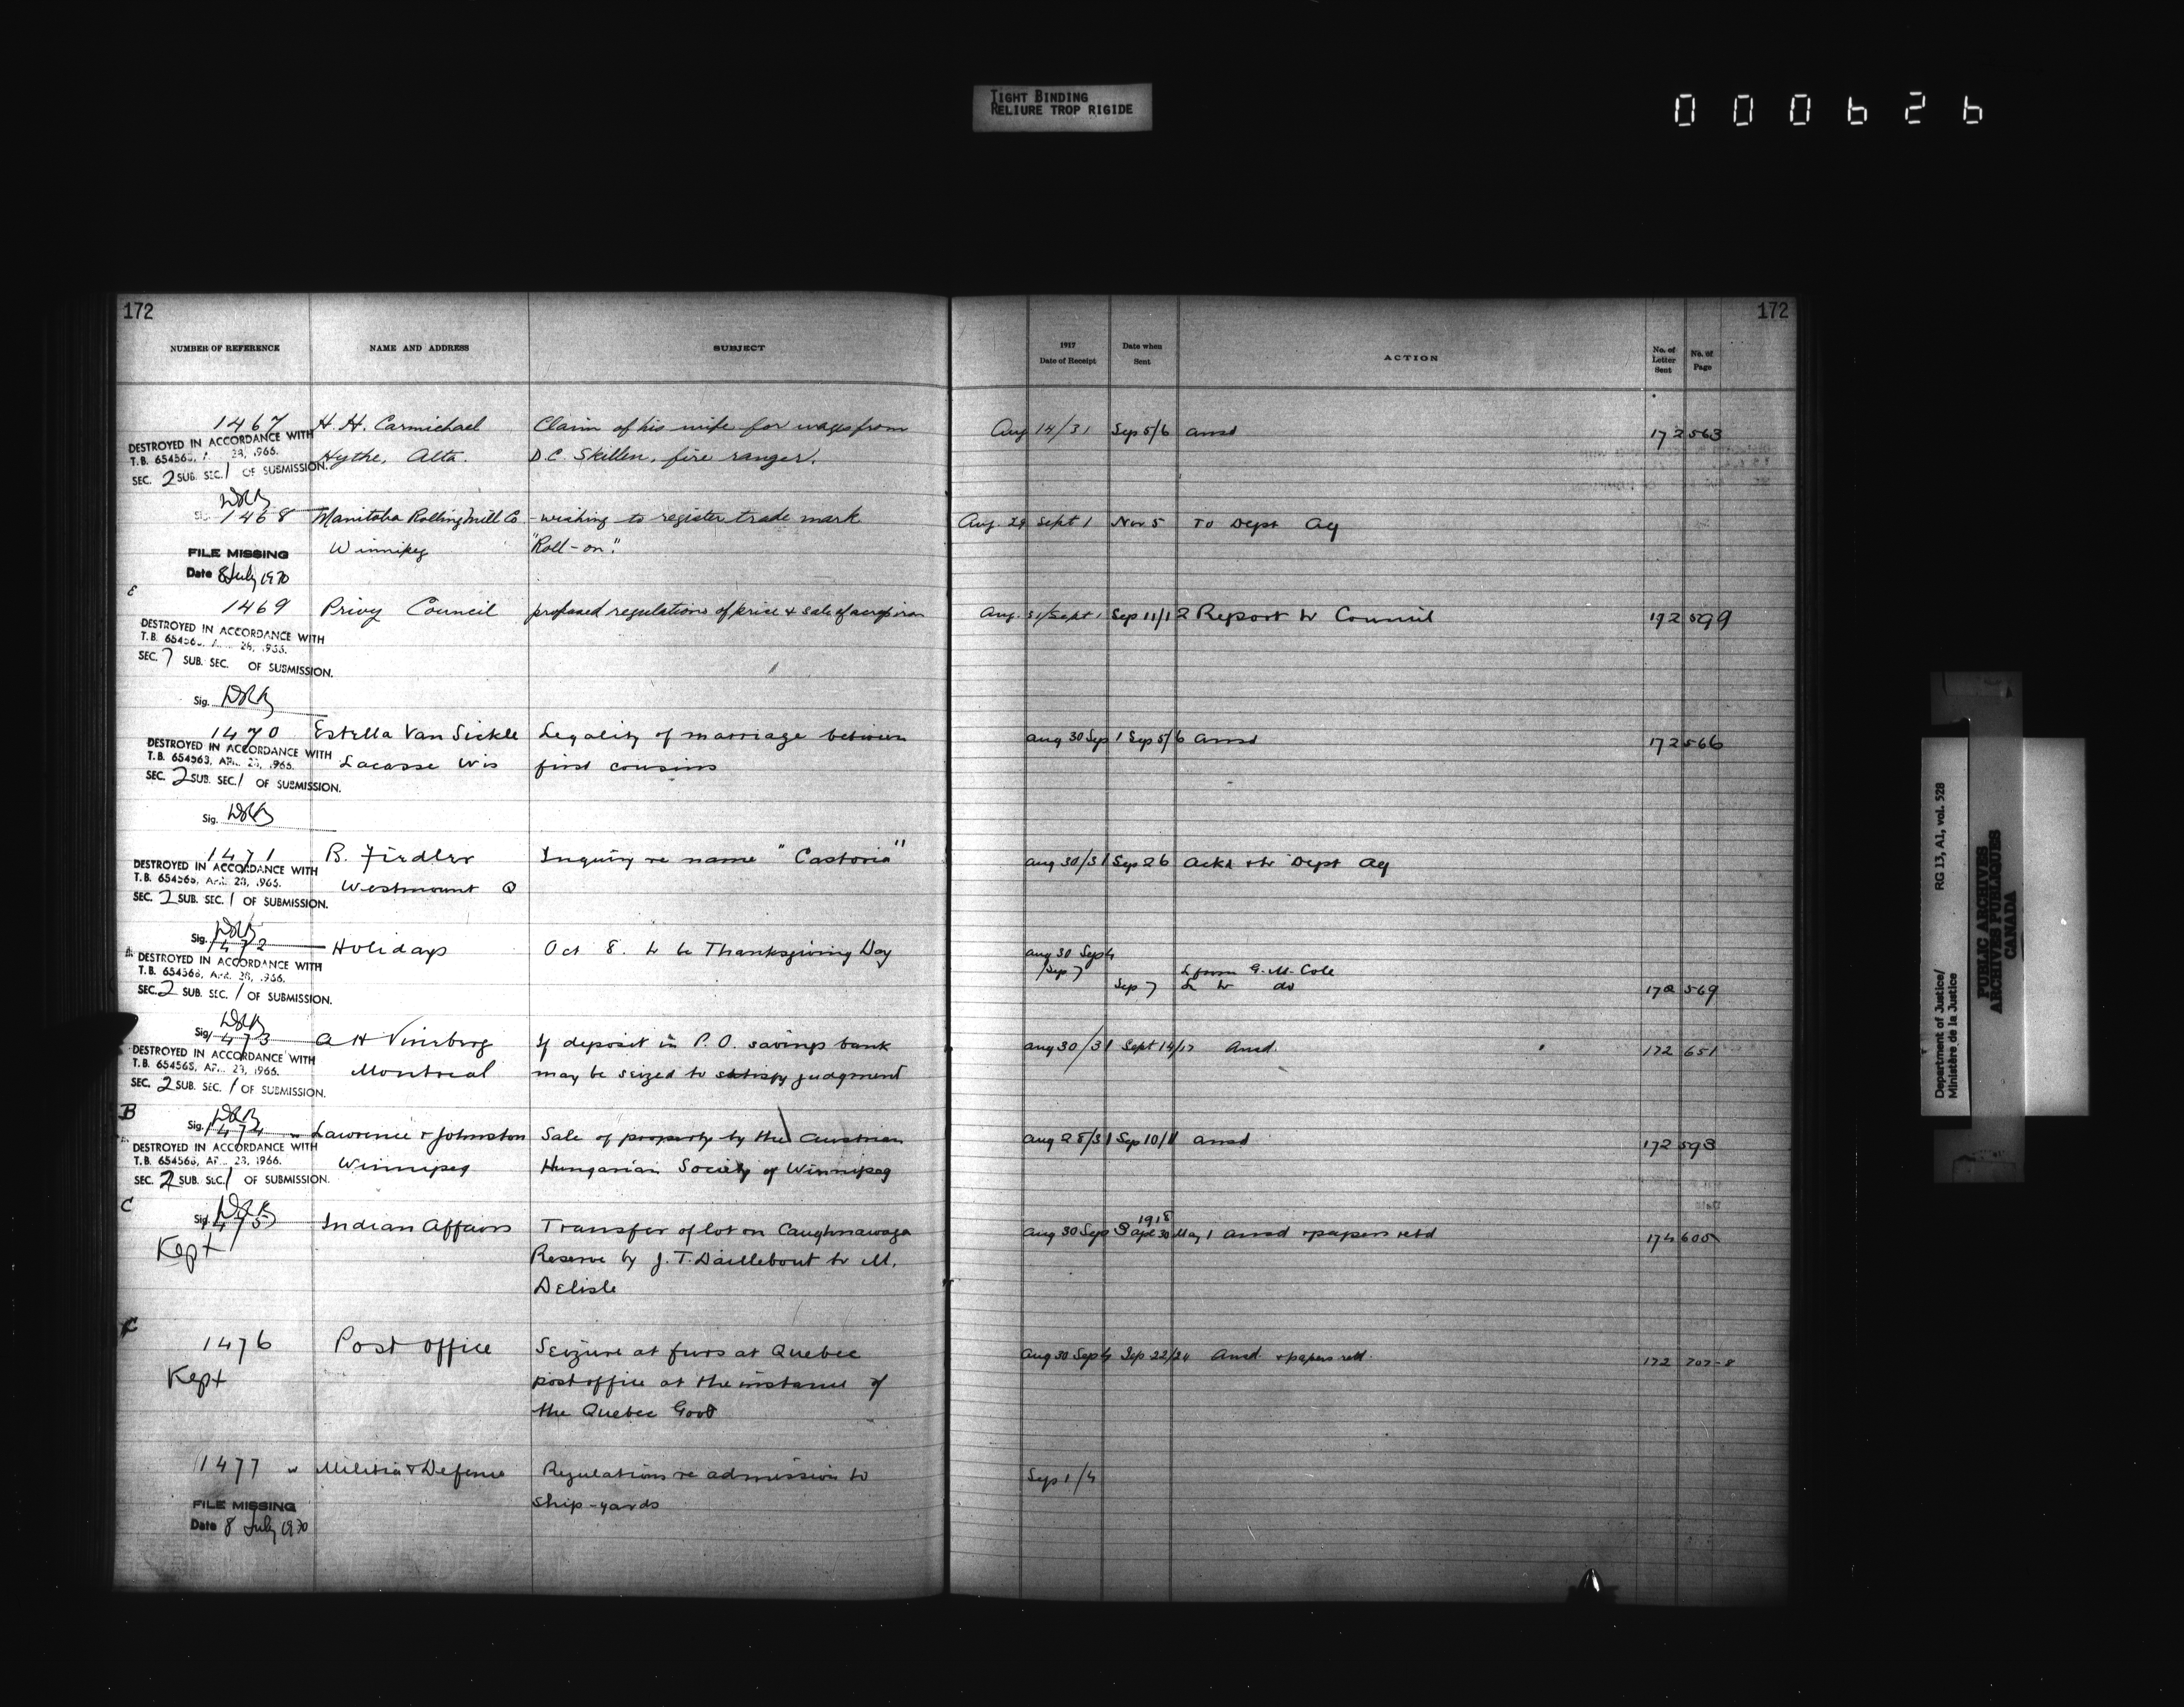 TIGHT BINDING
RELIURE TROP RIGIDE
000626
172
172
NUMBER OF REFERENCE NAME AND ADDRESS SUBJECT
1917 Date of Receipt Date when Sent ACTION No. of Letter Sent No. of Page
1467 H. H. Carmichael Claim of his wife for wages from Aug 14/31 Sep 5/6 ansd 172 563
DESTROYED IN ACCORDANCE WITH
T.B. 654563, 28, 1966. Hythe, Alta. D.C. Skillen, fire ranger.
SEC. 2 SUB. SEC. 1 OF SUBMISSION.
1468 Manitoba Rolling Mill Co - wishing to register trade mark Aug. 29 Sept 1 Nov 5 To Dept Ag
Winnipeg "Roll-on".
FILE MISSING
Date 8 July 1970
E
1469 Privy Council proposed regulations of price & sale of scrap iron Aug. 31/Sept 1 Sep 11/12 Report to Council 172 599
DESTROYED IN ACCORDANCE WITH
T.B. 65456 28, 1966.
SEC. 7 SUB. SEC. OF SUBMISSION.
Sig.
1470 Estella Van Sickle Legality of marriage between aug 30 Sep 1 Sep 5/6 ansd 172 566
DESTROYED IN ACCORDANCE WITH
T.B. 654563, APR. 28, 1966. Lacasse Wis first cousins
SEC. 2 SUB. SEC. 1 OF SUBMISSION.
Sig.
1471 B. Fiedler Inquiry re name "Castoria" aug 30/31 Sep 26 Ackd & to Dept Ag
DESTROYED IN ACCORDANCE WITH
T.B. 654563, APR. 28, 1966. Westmount Q
SEC. 2 SUB. SEC. 1 OF SUBMISSION.
Sig.
1472 Holidays Oct 8. to be Thanksgiving Day aug 30 Sep 4
DESTROYED IN ACCORDANCE WITH
T.B. 654563, APR. 28, 1966. /Sep 7 L from G. M. Cole
SEC. 2 SUB. SEC. 1 OF SUBMISSION. Sep 7 L to do 172 569
Sig.
1473 A H Vineberg If deposit in P. O. savings bank aug 30/31 Sept 14/17 Ansd. 172 651
DESTROYED IN ACCORDANCE WITH
T.B. 654563, APR. 28, 1966. Montreal may be seized to satisfy judgment
SEC. 2 SUB. SEC. 1 OF SUBMISSION.
B
Sig.
1474 Lawrence & Johnston Sale of property by the Austrian aug 28/31 Sep 10/11 ansd 172 593
DESTROYED IN ACCORDANCE WITH
T.B. 654563, APR. 28, 1966. Winnipeg Hungarian Society of Winnipeg
SEC. 2 SUB. SEC. 1 OF SUBMISSION.
C
Sig.
1918
1475 Indian Affairs Transfer of lot on Caughnawaga Aug 30 Sep 8 apl 30 May 1 ansd & papers retd 174 605
Kept Reserve by J. T. Daillebout to M.
Delisle
C
1476 Post Office Seizure at furs at Quebec Aug 30 Sep 4 Sep 22/24 Ansd. & papers retd. 172 707-8
Kept post office at the instance of
the Quebec Govt
1477 Militia & Defence Regulations re admission to Sep 1/4
ship-yards
FILE MISSING
Date 8 July 1970
Department of Justice/
Ministère de la Justice
RG 13, A1, vol. 528
PUBLIC ARCHIVES
ARCHIVES PUBLIQUES
CANADA